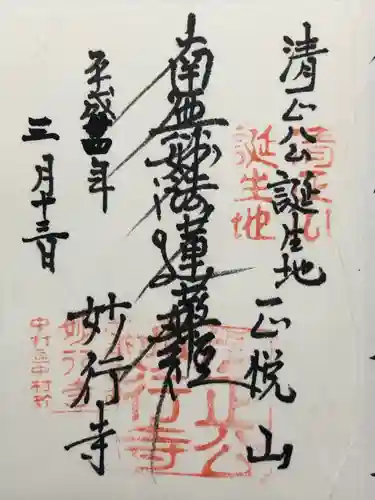 清正公誕生地
正悦山
南無妙法蓮華経
妙行寺
平成十四年
三月十三日
清正公
誕生地
正公
行寺
妙行寺
中村区中村町